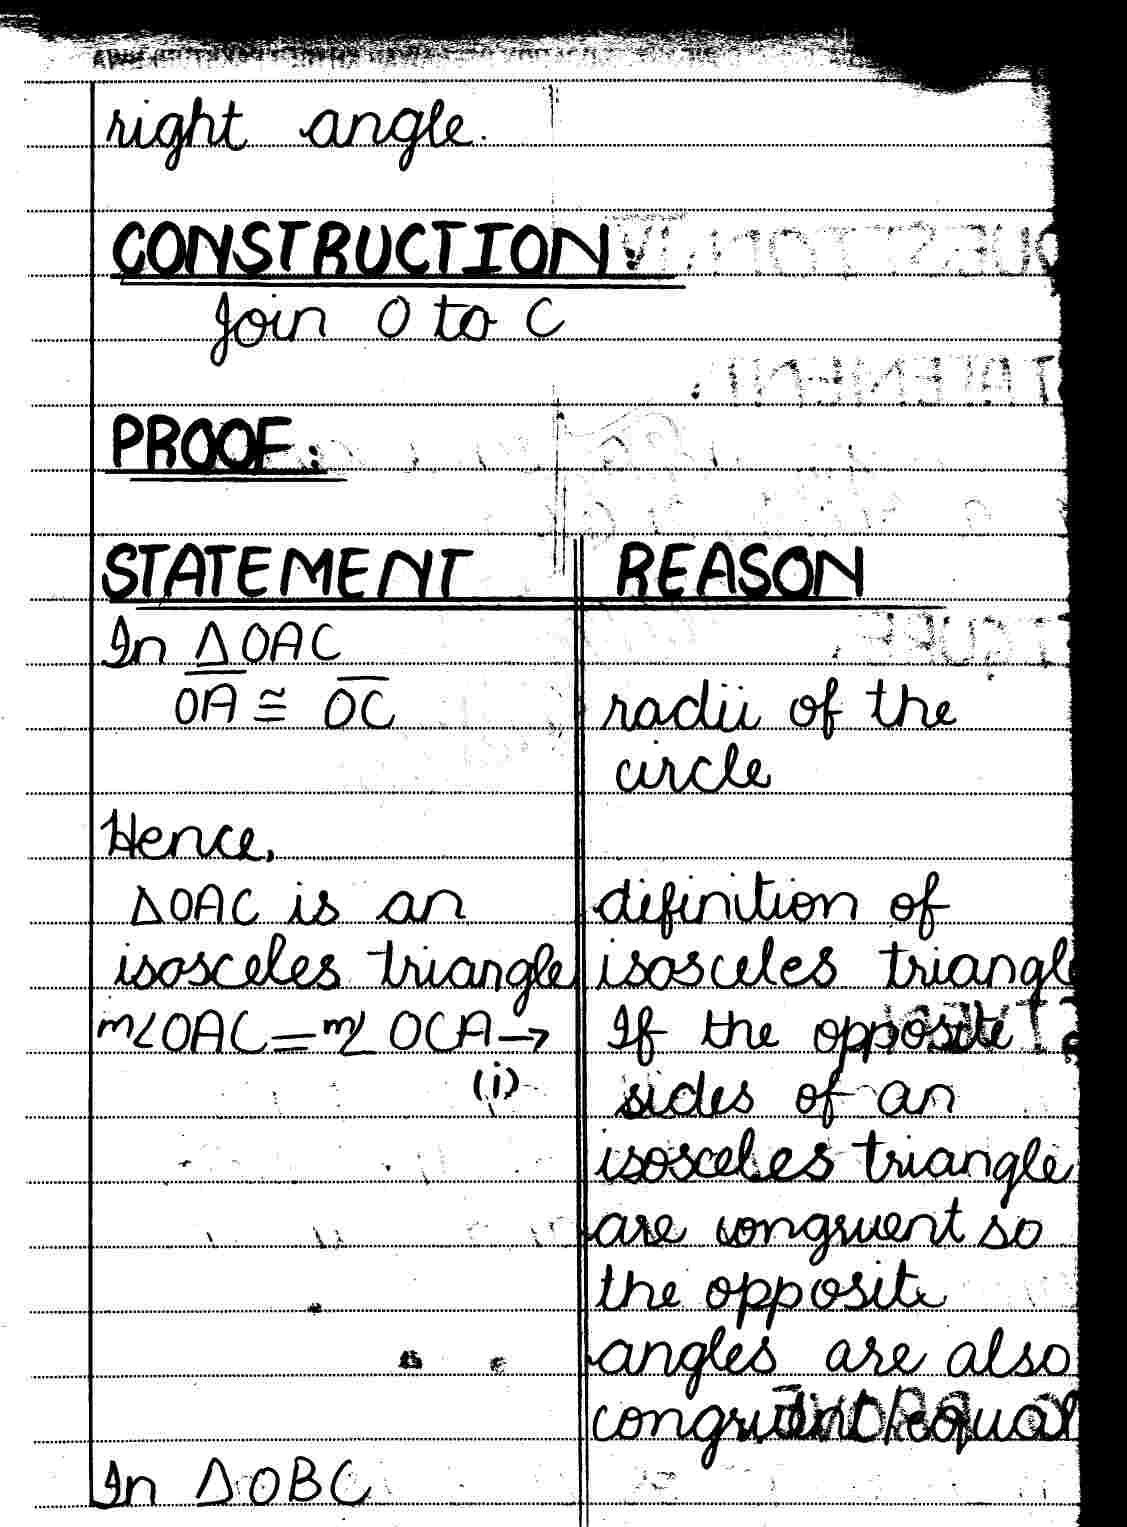 right angle.
CONSTRUCTION:
Join O to C
PROOF:
STATEMENT REASON
In △OAC
OA ≅ OC radii of the
circle
Hence,
△OAC is an definition of
isosceles triangle isosceles triangle
m∠OAC = m∠OCA → If the opposite
(i) sides of an
isosceles triangle
are congruent so
the opposite
angles are also
congruent/equal
In △OBC